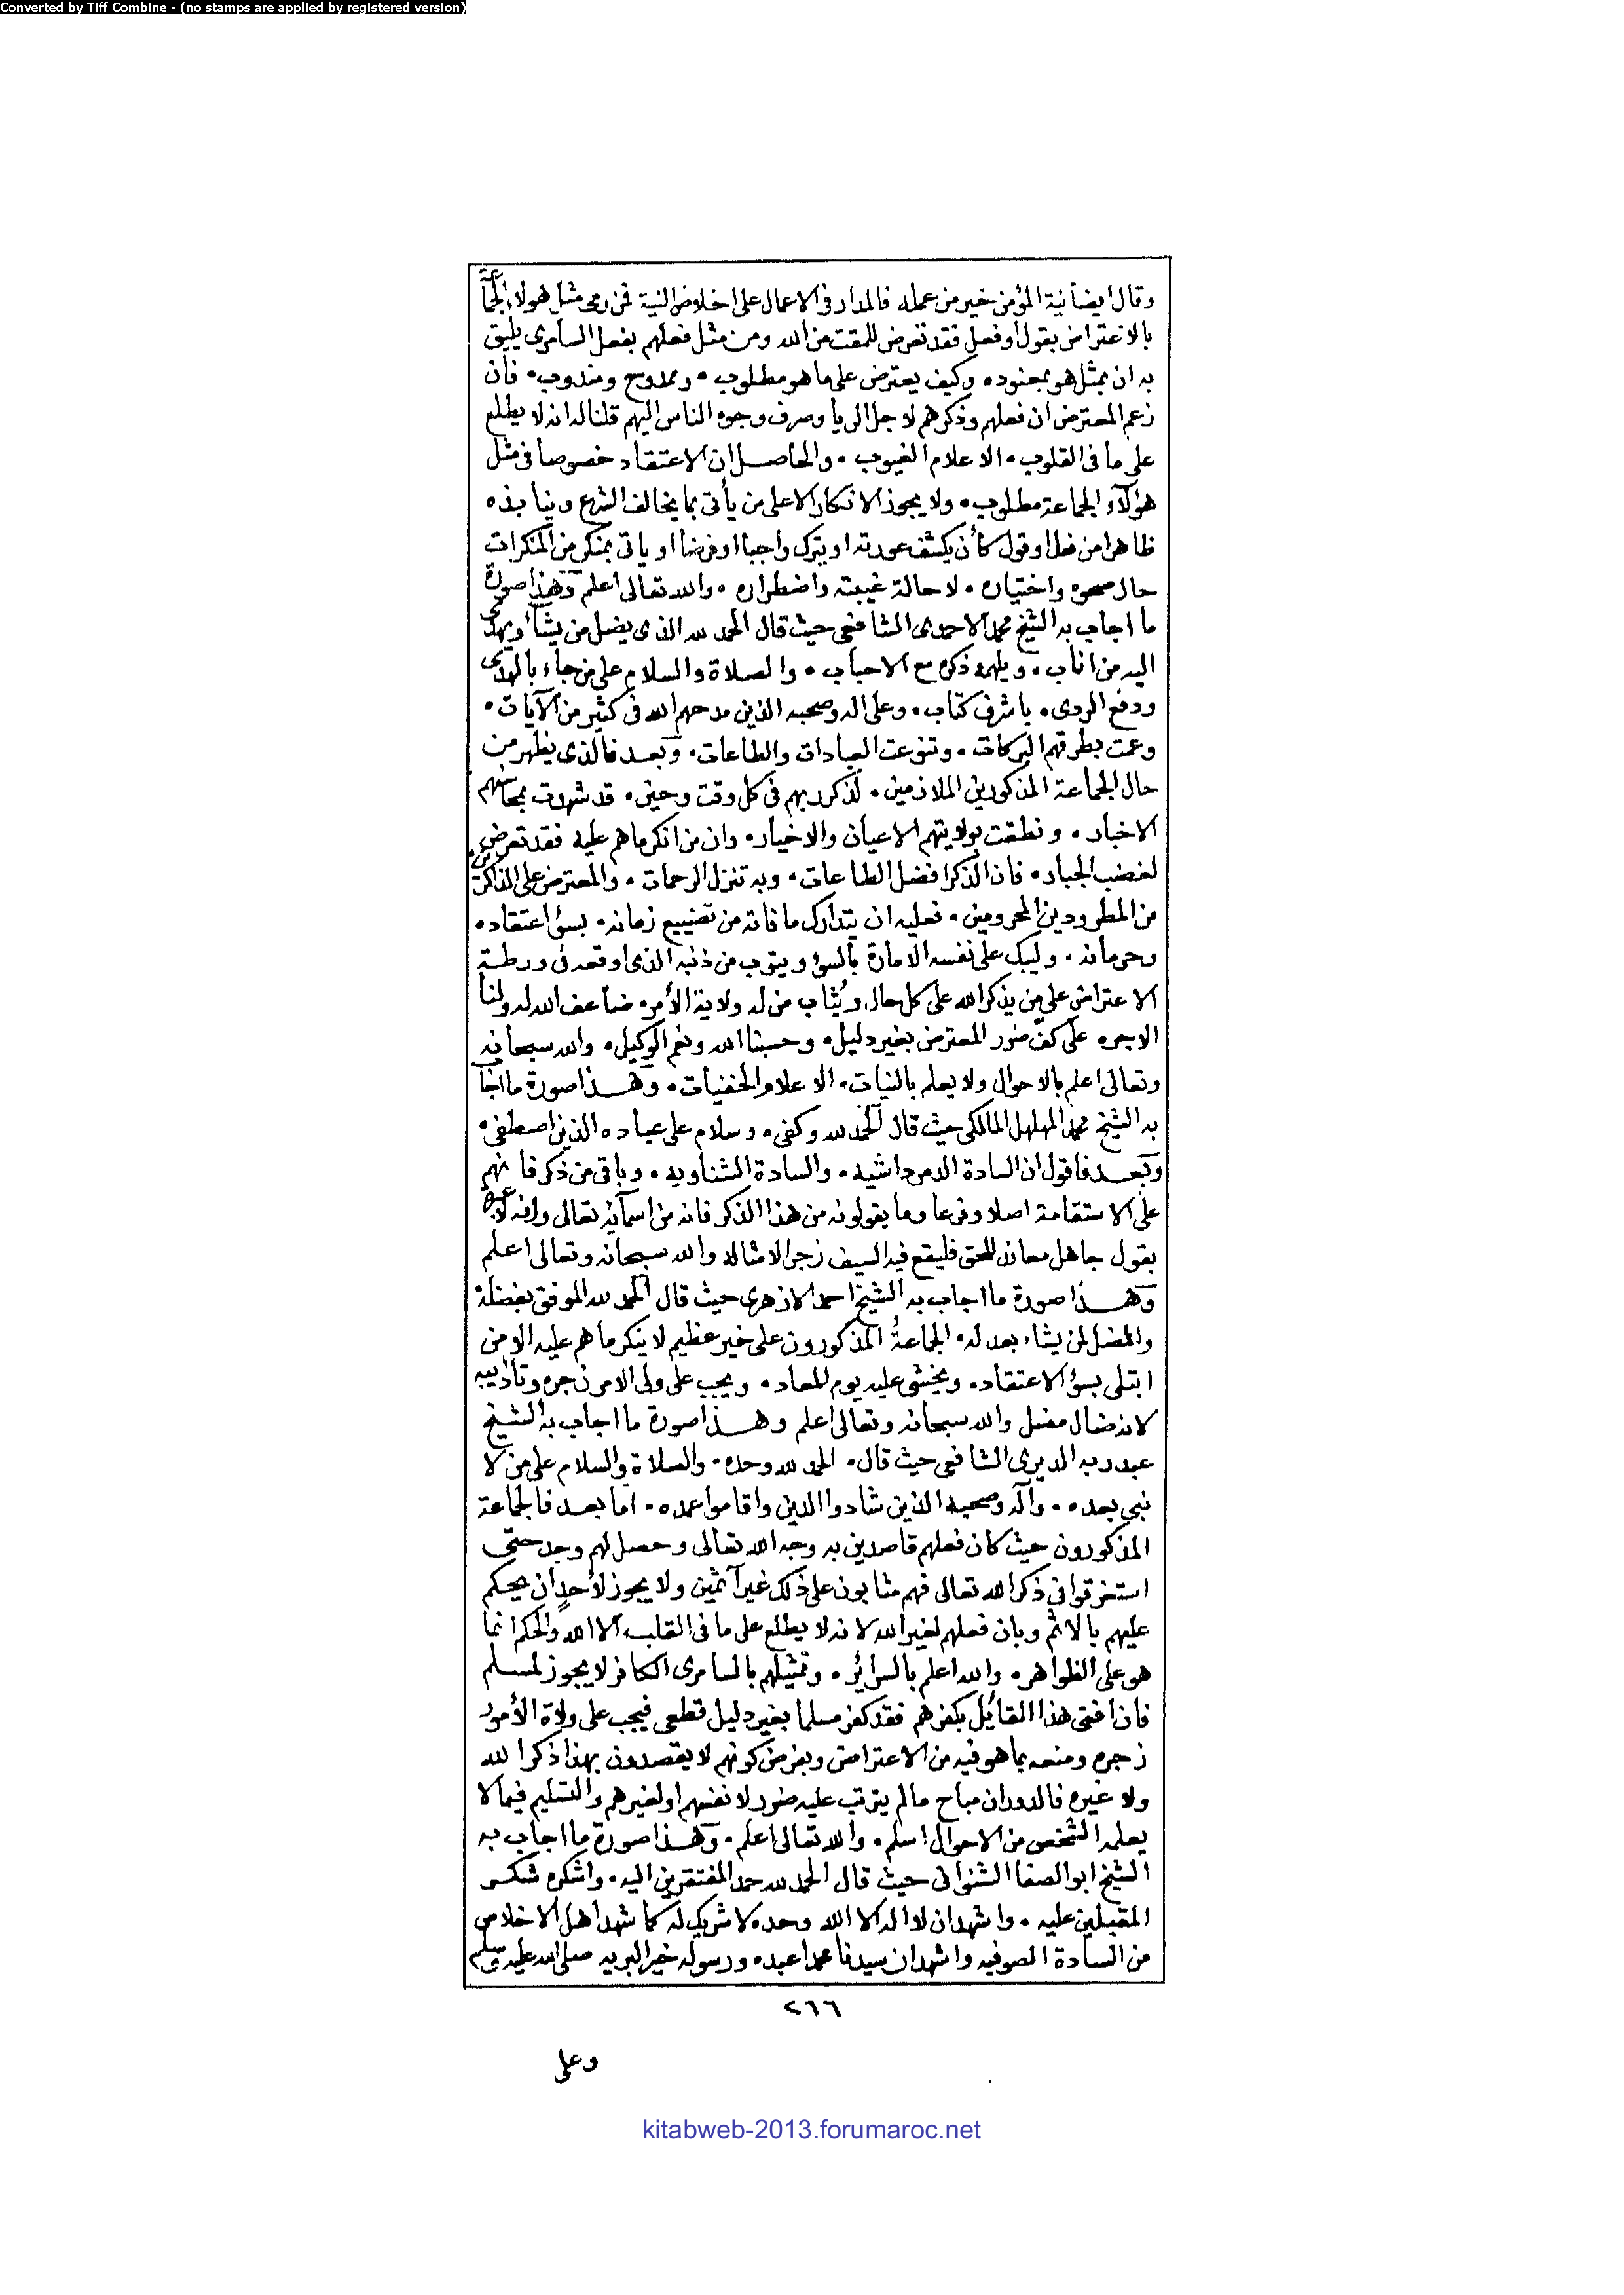 Converted by Tiff Combine - (no stamps are applied by registered version)
وقال ايضا نية المؤمن خير من عمله فالمدار فى الاعمال على اخلاص النية فمن رمى مثل هولاء الجماعة
بالاعتراض بقول او فعل فقد تعرض للمقت من الله ومن مثل فعلهم بفعل السامرى يليق
به ان يمثل هو بجنوده وكيف يعترض على ما هو مطلوب • وممدوح ومندوب • فان
زعم المعترض ان فعلهم وذكرهم لاجل الريا وصرف وجوه الناس اليهم قلنا له انه لا يطلع
على ما فى القلوب • الا علام الغيوب • والحاصل ان الاعتقاد خصوصا فى مثل
هؤلآء الجماعة مطلوب • ولا يجوز الانكار الا على من يأتى بما يخالف الشرع وينابذه
ظاهرا من فعل او قول كأن يكشف عورته او يترك واجبا او فرضا او ياتى بمنكر من المنكرات
حال صحوه واختياره • لا حالة غيبته واضطراره • والله تعالى اعلم وهذا صورة
ما اجاب به الشيخ محمد الاحمدى الشافعى حيث قال الحمد لله الذى يضل من يشآء ويهدى
اليه من اناب • ويلهمه ذكره مع الاحباب • والصلاة والسلام على من جاء بالهدى
ودفع الردى • باشرف كتاب • وعلى اله وصحبه الذين مدحهم الله فى كثير من الآيات •
وعمت بطرقهم البركات • وتنوعت العبادات والطاعات • وبعد فالذى يظهر من
حال الجماعة المذكورين الملازمين • لذكر ربهم فى كل وقت وحين • قد شهدت بمحاسنهم
الاخبار • ونطقت بولايتهم الاعيان والاخيار • وان من انكر ما هم عليه فقد تعرض
لغضب الجبار • فان الذكر افضل الطاعات • وبه تنزل الرحمات • والمعترض على الذاكرين
من المطرودين المحرومين • فعليه ان يتدارك ما فاته من تضييع زمانه • بسؤ اعتقاده
وحرمانه • وليبك على نفسه الامارة بالسؤ ويتوب من ذنبه الذى اوقعه فى ورطة
الاعتراض على من يذكر الله على كل حال ويُثاب من له ولاية الأمر • ضاعف الله له ولنا
الاجر • على كفّ ضرر المعترض بغير دليل • وحسبنا الله ونعم الوكيل • والله سبحانه
وتعالى اعلم بالاحوال ولا يعلم بالنيات • الا علام الخفيات • وهذا صورة ما اجاب
به الشيخ محمد المهلهل المالكى حيث قال الحمد لله وكفى • وسلام على عباده الذين اصطفى •
وبعد فاقول ان السادة الدمرداشيه • والسادة الشناويه • وباقى من ذكر فانهم
على الاستقامة اصلا وفرعا وما يقولونه من هذا الذكر فانه من اسمآئه تعالى وانه لا عبرة
بقول جاهل معاند للحق فليقع فيه السيف زجرا لامثاله والله سبحانه وتعالى اعلم
وهذا صورة ما اجاب به الشيخ احمد الازهرى حيث قال الحمد لله الموفق بفضله
والمضل لمن يشاء بعدله • الجماعةُ المذكورون على خير عظيم لا ينكر ما هم عليه الا من
ابتلى بسؤ الاعتقاد • ويخشى عليه يوم المعاد • ويجب على ولى الامر زجره وتأديبه
لانه ضال مضل والله سبحانه وتعالى اعلم وهذا صورة ما اجاب به الشيخ
عبد ربه الديرى الشافعى حيث قال • الحمد لله وحده • والصلاة والسلام على من لا
نبى بعده • وآله وصحبه الذين شادوا الدين واقاموا عمده • اما بعد فالجماعة
المذكورون حيث كان فعلهم قاصدين به وجه الله تعالى وحصل لهم وجد حتى
استغرقوا فى ذكر الله تعالى فهم مثابون على ذلك غير آثمين ولا يجوز لأحدٍ ان يحكم
عليهم بالاثم وبان فعلهم لغير الله لانه لا يطلع على ما فى القلب الا الله والحكم انما
هو على الظواهر • والله اعلم بالسرائر • وتمثيلهم بالسامرى الكافر لا يجوز لمسلم
فان افتى هذا القائل بكفرهم فقد كفر مسلما بغير دليل قطعى فيجب على ولاة الأمور
زجره ومنعه بما هو فيه من الاعتراض وبفرض كونهم لا يقصدون بهذا ذكر الله
ولا غيره فالدوران مباح مالم يترتب عليه ضرر لانفسهم او لغيرهم والتسليم فيما لا
يعلمه الشخص من الاحوال اسلم • والله تعالى اعلم • وهذا صورة ما اجاب به
الشيخ ابو الصفا الشنوانى حيث قال الحمد لله حمد المفتقرين اليه • واشكره شكر
المقبلين عليه • واشهد ان لا اله الا الله وحده لا شريك له كما شهد اهل الاخلاص
من السادة الصوفيه واشهد ان سيدنا محمدا عبده ورسوله خير البريه صلى الله عليه وسلم
٢٦٦
وعلى
kitabweb-2013.forumaroc.net